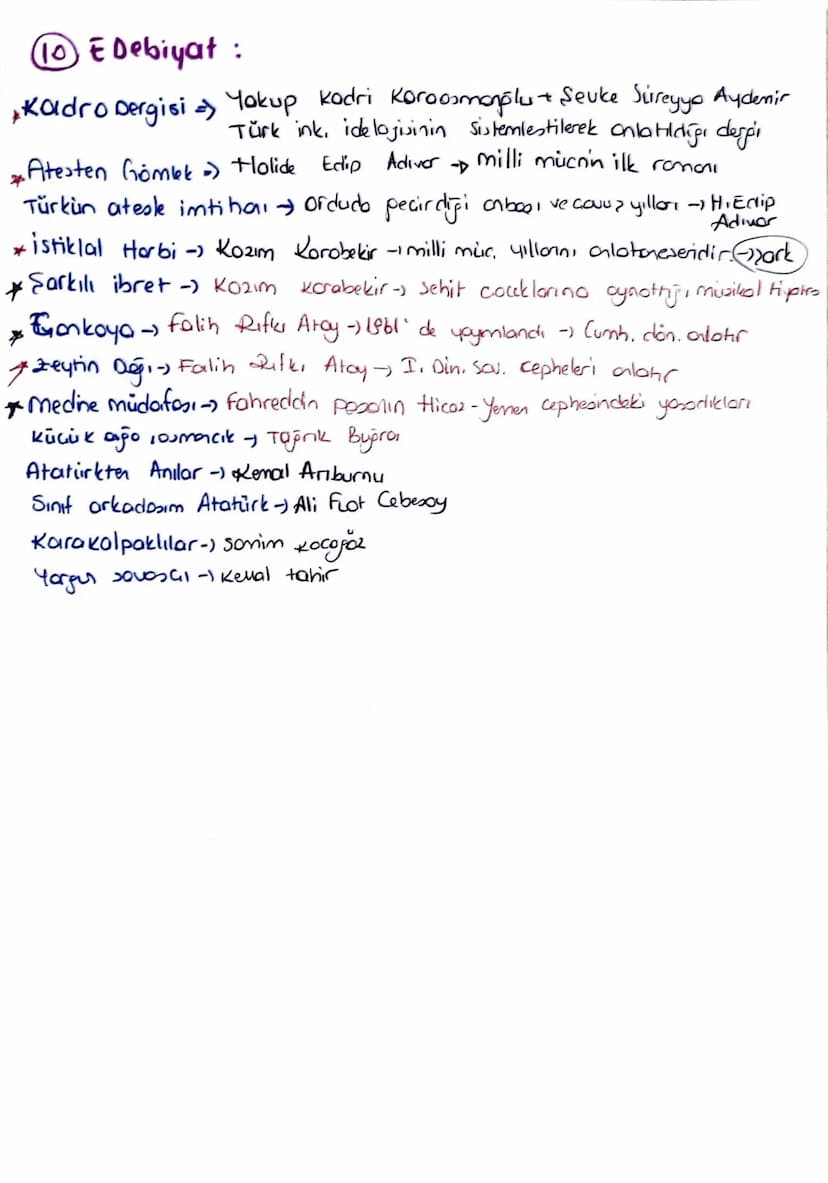 10 Edebiyat :
Kadro Dergisi → Yakup Kadri Karaosmanoğlu + Şevke Süreyya Aydemir
Türk ink. idelojisinin sistemleştilerek anlatıldığı dergi
Ateşten Gömlek → Halide Edip Adıvar → milli müc'n ilk romanı
Türkün ateşle imtihanı → orduda geçirdiği onbaşı ve çavuş yılları → H. Edip
Adıvar
İstiklal Harbi → Kazım Karabekir → milli müc. yıllarını anlatan eseridir. → şark
Şarkılı ibret → Kazım Karabekir → şehit çocuklarına oynattığı müzikal tiyatro
Çankaya → Falih Rıfkı Atay → 1961' de yayınlandı → Cumh. dön. anlatır
Zeytin Dağı → Falih Rıfkı Atay → I. Dün. Sav. cepheleri anlatır
Medine müdafası → Fahreddin paşanın Hicaz - Yemen cephesindeki yaşadıkları
Küçük ağa, osmancık → Tağrık Buğra
Atatürkten Anılar → Kemal Arıburnu
Sınıf arkadaşım Atatürk → Ali Fuat Cebesoy
Karakalpaklılar → samim kocagöz
Yorgun savaşçı → Kemal tahir